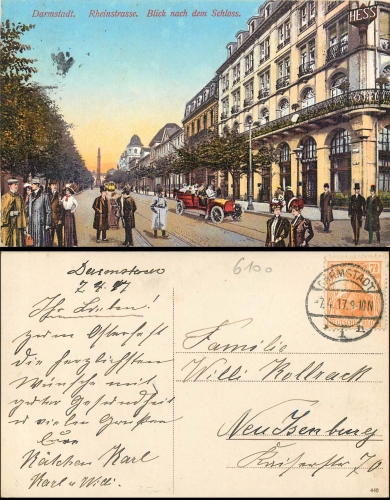 Darmstadt. Rheinstrasse. Blick nach dem Schloss.
HESS
HOTEL
6100
Darmstadt
2.4.17
Ihr Lieben!
zum Osterfest
die herzlichsten
Wünsche mit
guter Gesundheit
u vielen Grüßen
Eure
Kätchen Karl
Karl u. Willi.
DARMSTADT
-2.4.17.9-10N
* 1 *
7½
Familie
Willi Kollrack
Neu Isenburg
Kaiserstr 70
448